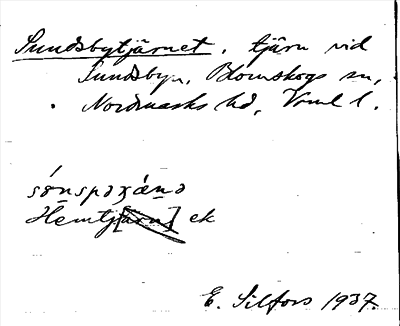 Sundsbytjärnet, tjärn vid
Sundsbyn, Blomskogs sn,
Nordmarks hd, Vrml l.
sǿnspəʒǽṇə
Hemtj[ärn] ek
E. Silfors 1937.